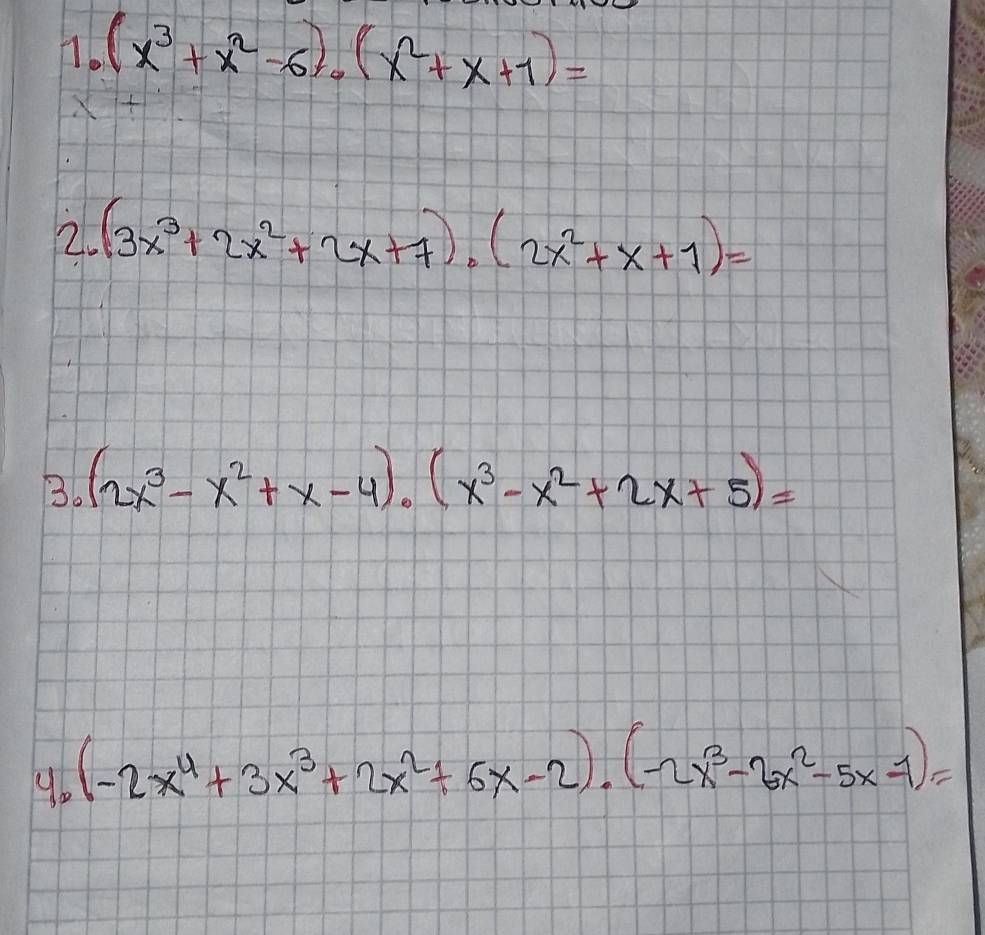 1. (x³ + x² - 6) . (x² + x + 1) =
x +
2. (3x³ + 2x² + 2x + 7) . (2x² + x + 1) =
3. (2x³ - x² + x - 4) . (x³ - x² + 2x + 5) =
4. (-2x⁴ + 3x³ + 2x² + 6x - 2) . (-2x³ - 2x² - 5x - 1) =